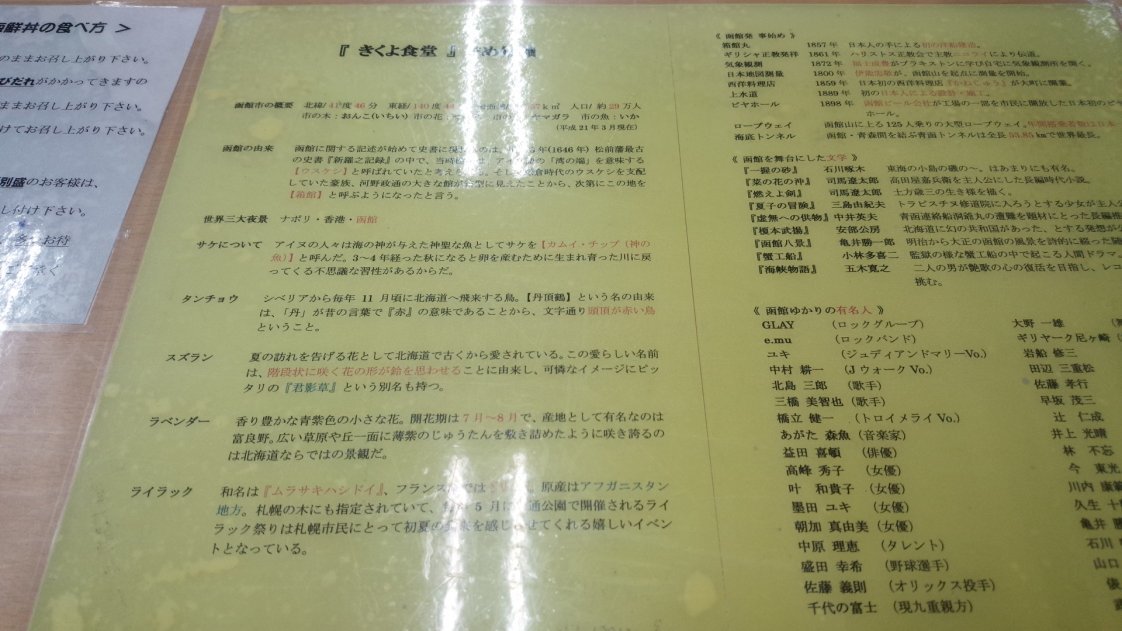 海鮮丼の食べ方 ＞
のままお召し上がり下さい。
びだれがかかってきますの
ままお召し上がり下さい。
けてお召し上がり下さい。
別盛のお客様は、
し付け下さい。
お待
『 きくよ食堂 』
函館市の概要 北緯/41度46分 東経/140度 人口/約29万人
市の木：おんこ(いちい) 市の花： ヤマガラ 市の魚：いか
(平成21年3月現在)
函館の由来 函館に関する記述が始めて史書に 年(1646年)松前藩最古
の史書『新羅之記録』の中で、当時 アイ 語の「湾の端」を意味する
【ウスケシ】と呼ばれていたと考え そし 食時代のウスケシを支配
していた豪族、河野政通の大きな館が 型に見えたことから、次第にこの地を
【箱館】と呼ぶようになったと言う。
世界三大夜景 ナポリ・香港・函館
サケについて アイヌの人々は海の神が与えた神聖な魚としてサケを【カムイ・チップ（神の
魚）】と呼んだ。3～4年経った秋になると卵を産むために生まれ育った川に戻
ってくる不思議な習性があるからだ。
タンチョウ シベリアから毎年 11 月頃に北海道へ飛来する鳥。【丹頂鶴】という名の由来
は、「丹」が昔の言葉で『赤』の意味であることから、文字通り頭頂が赤い鳥
ということ。
スズラン 夏の訪れを告げる花として北海道で古くから愛されている。この愛らしい名前
は、階段状に咲く花の形が鈴を思わせることに由来し、可憐なイメージにピッ
タリの『君影草』という別名も持つ。
ラベンダー 香り豊かな青紫色の小さな花。開花期は7月～8月で、産地として有名なのは
富良野。広い草原や丘一面に薄紫のじゅうたんを敷き詰めたように咲き誇るの
は北海道ならではの景観だ。
ライラック 和名は『ムラサキハシドイ』、フランス では 原産はアフガニスタン
地方。札幌の木にも指定されていて、 5 月 通公園で開催されるライ
ラック祭りは札幌市民にとって初夏の 来を感じ せてくれる嬉しいイベン
トとなっている。
《 函館発 事始め 》
箱館丸 1857年 日本人の手による初の洋船建造。
ギリシャ正教発祥 1861年 ハリストス正教会で主教ニコライにより伝道。
気象観測 1872年 福士成豊がブラキストンに学び自宅に気象観測所を開く。
日本地図測量 1800年 伊能忠敬が、函館山を起点に測量を開始。
西洋料理店 1859年 日本初の西洋料理店『かねじゅう』が大町に開業。
上水道 1889年 初の日本人による設計・施工。
ビヤホール 1898年 函館ビール会社が工場の一部を市民に開放した日本初のビヤ
ホール。
ロープウェイ 函館山に上る125人乗りの大型ロープウェイ。年間搭乗者数は日本一
海底トンネル 函館・青森間を結ぶ青函トンネルは全長53.85kmで世界最長。
《 函館を舞台にした文学 》
『一握の砂』 石川啄木 東海の小島の磯の～。はあまりにも有名。
『菜の花の沖』 司馬遼太郎 高田屋嘉兵衛を主人公にした長編時代小説。
『燃えよ剣』 司馬遼太郎 土方歳三の生き様を描く。
『夏子の冒険』 三島由紀夫 トラピスチヌ修道院に入ろうとする少女を主人公
『虚無への供物』中井英夫 青函連絡船洞爺丸の遭難を題材にとった長編推
『榎本武揚』 安部公房 北海道に幻の共和国があった、とする発想が
『函館八景』 亀井勝一郎 明治から大正の函館の風景を詩的に綴った随
『蟹工船』 小林多喜二 監獄の様な蟹工船の中で起こる人間ドラマ。
『海峡物語』 五木寛之 二人の男が艶歌の心の復活を目指し、レコ
挑む。
《 函館ゆかりの有名人 》
GLAY （ロックグループ） 大野 一雄
e.mu （ロックバンド） ギリヤーク尼ヶ崎
ユキ （ジュディアンドマリーVo.） 岩船 修三
中村 耕一 （JウォークVo.） 田辺 三重松
北島 三郎 （歌手） 佐藤 孝行
三橋 美智也（歌手） 早坂 茂三
橋立 健一 （トロイメライVo.） 辻 仁成
あがた 森魚（音楽家） 井上 光晴
益田 喜頓 （俳優） 林 不忘
高峰 秀子 （女優） 今 東光
叶 和貴子 （女優） 川内 康範
墨田 ユキ （女優） 久生 十
朝加 真由美（女優） 亀井 勝
中原 理恵 （タレント） 石川
盛田 幸希 （野球選手） 山口
佐藤 義則 （オリックス投手） 俵
千代の富士 （現九重親方）